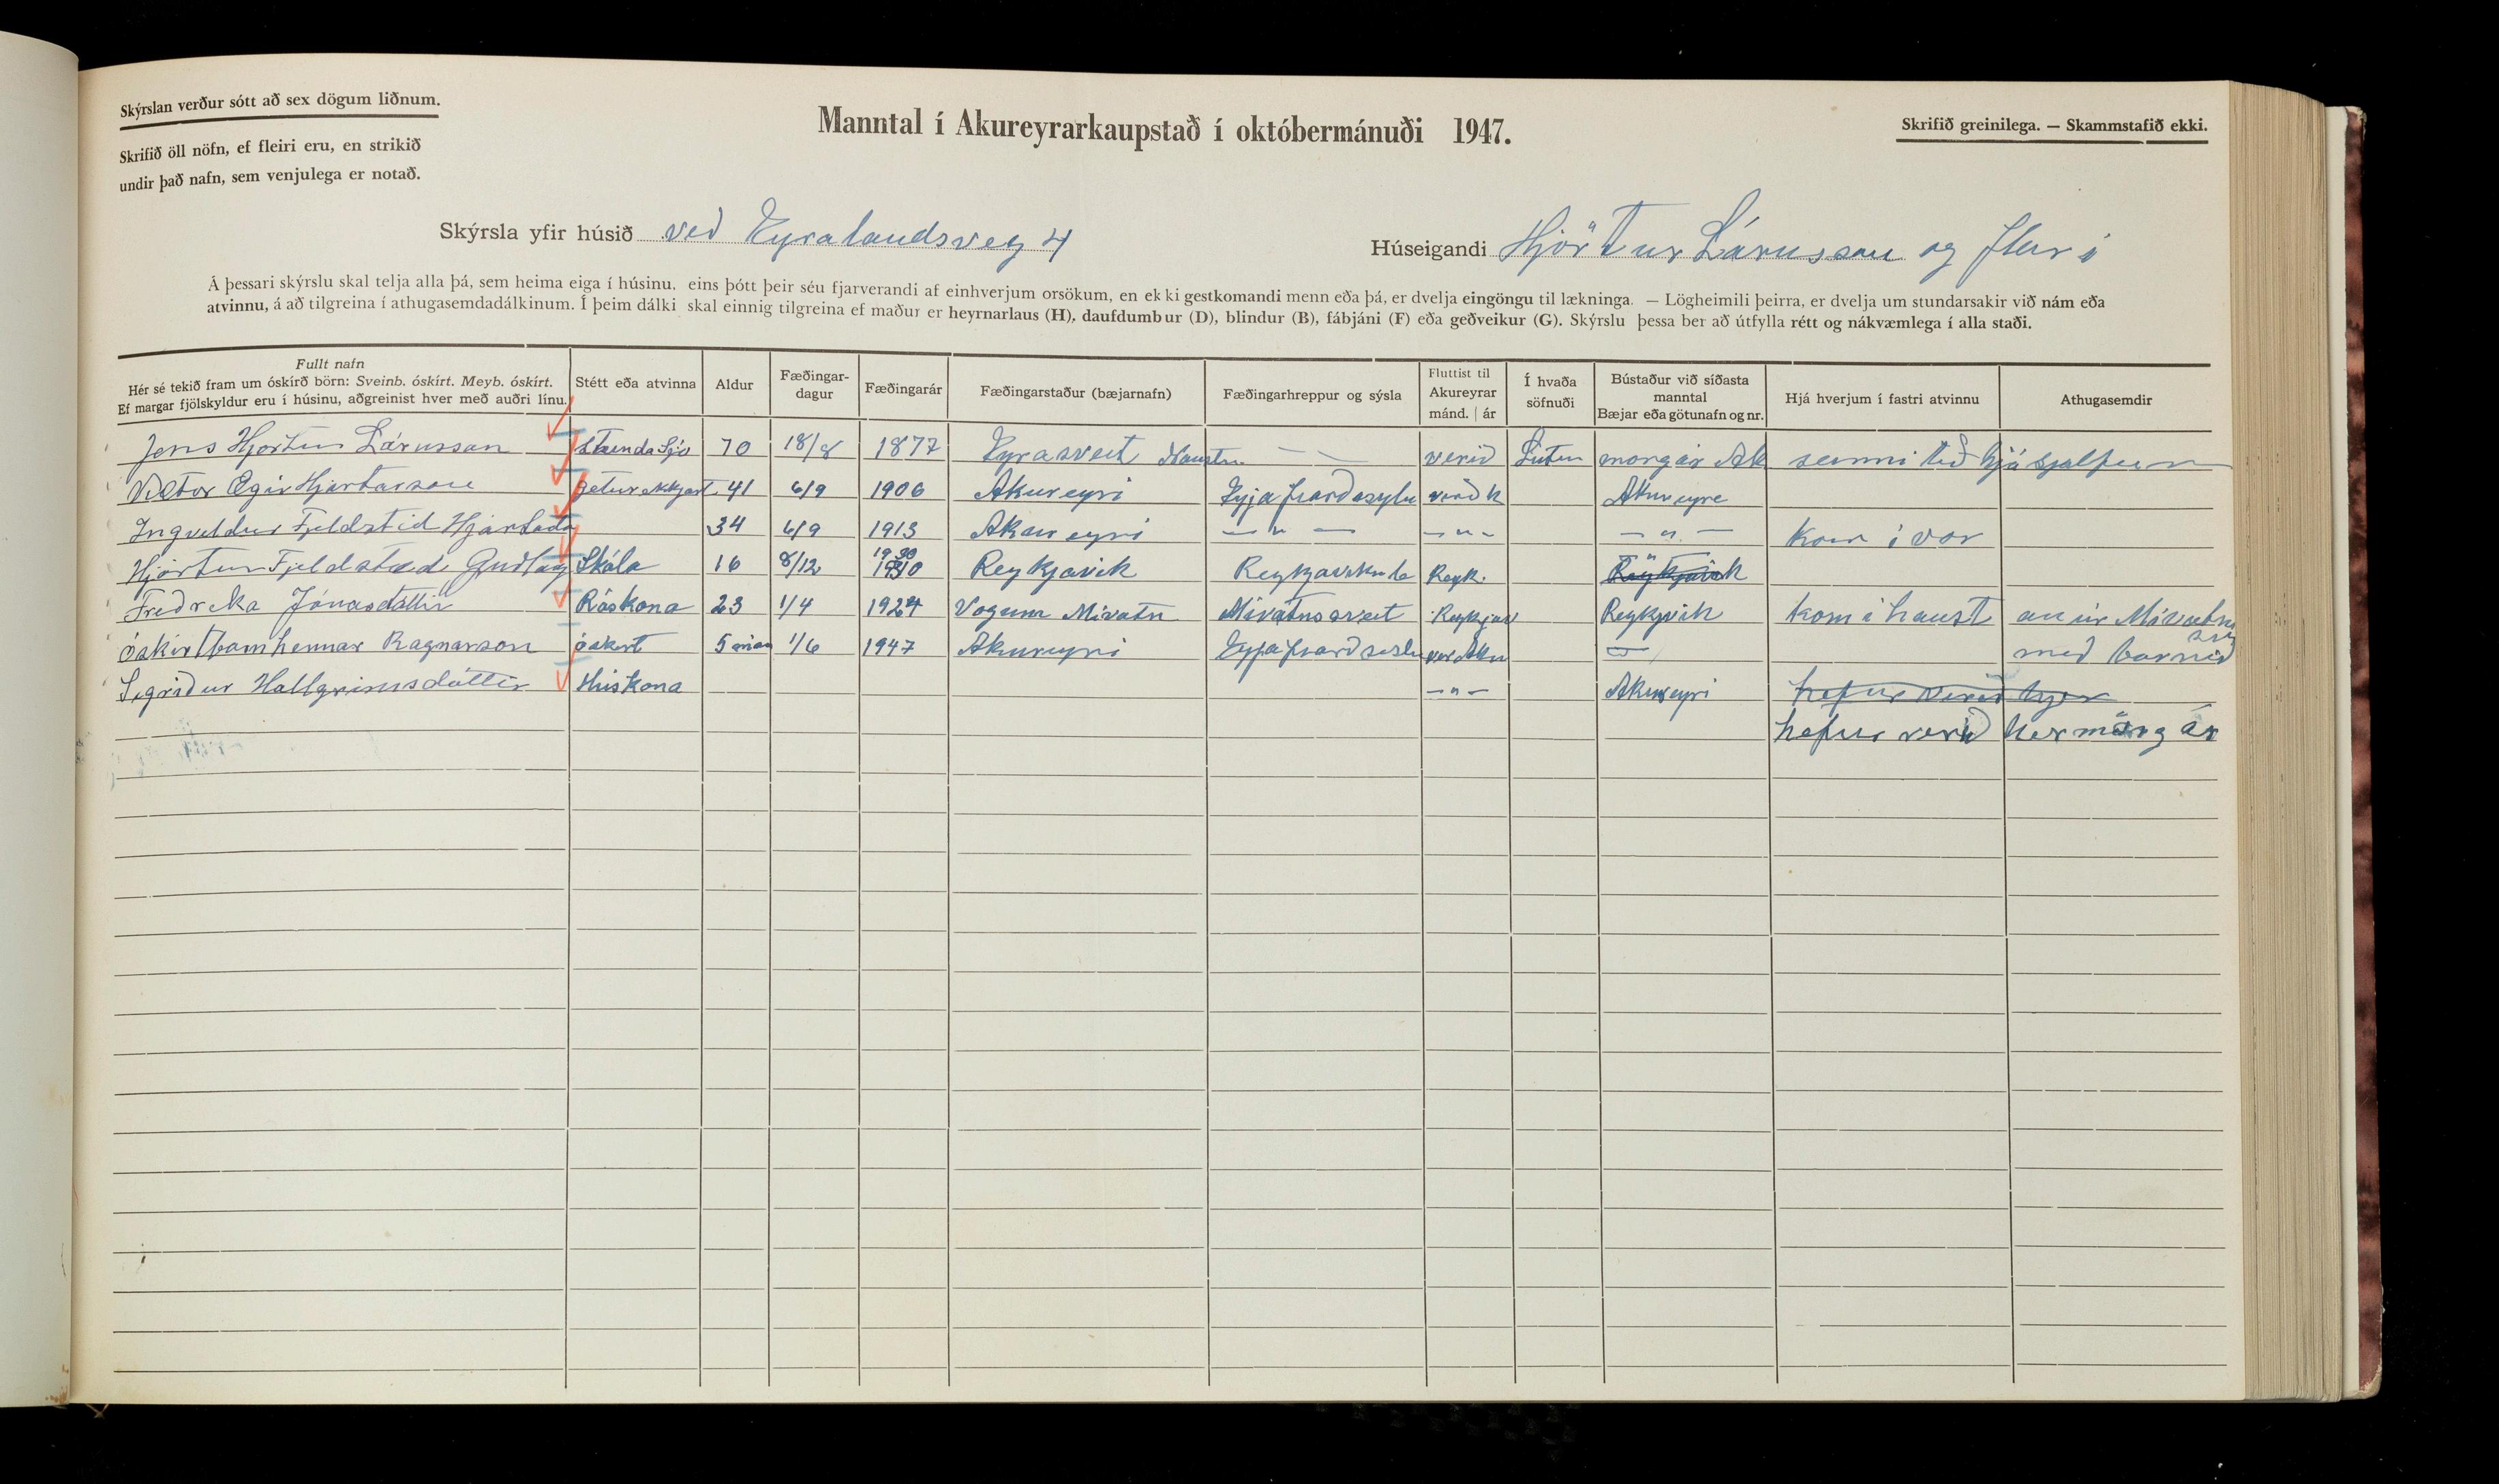 Skýrslan verður sótt að sex dögum liðnum.
Skrifið öll nöfn, ef fleiri eru, en strikið
undir það nafn, sem venjulega er notað.
Manntal í Akureyrarkaupstað í októbermánuði 1947.
Skrifið greinilega. — Skammstafið ekki.
Skýrsla yfir húsið við Eyralandsveg 4
Húseigandi Hjörtur Lárusson og fleri
Á þessari skýrslu skal telja alla þá, sem heima eiga í húsinu, eins þótt þeir séu fjarverandi af einhverjum orsökum, en ekki gestkomandi menn eða þá, er dvelja eingöngu til lækninga. — Lögheimili þeirra, er dvelja um stundarsakir við nám eða
atvinnu, á að tilgreina í athugasemdadálkinum. Í þeim dálki skal einnig tilgreina ef maður er heyrnarlaus (H), daufdumbur (D), blindur (B), fábjáni (F) eða geðveikur (G). Skýrslu þessa ber að útfylla rétt og nákvæmlega í alla staði.
Fullt nafn
Hér sé tekið fram um óskírð börn: Sveinb. óskírt. Meyb. óskírt.
Ef margar fjölskyldur eru í húsinu, aðgreinist hver með auðri línu.
Stétt eða atvinna
Aldur
Fæðingar-
dagur
Fæðingarár
Fæðingarstaður (bæjarnafn)
Fæðingarhreppur og sýsla
Fluttist til
Akureyrar
mánd. | ár
Í hvaða
söfnuði
Bústaður við síðasta
manntal
Bæjar eða götunafn og nr.
Hjá hverjum í fastri atvinnu
Athugasemdir
Jens Hjörtur Lárusson Stunda Sjó 70 18/8 1877 Eyrasveit — — verið Luter morgár Ak
Viktor Ægir Hjartarson 41 6/9 1906 Akureyri Eyjafjarðasylu Akureyre
Ingveldur Fjeldsted 34 6/9 1913 Akureyri — " — — " — — " — Kom í vor
Hjörtur Fjeldsted Guðlaug Skóla 16 8/12 1930 Reykjavik Reyk. Reykjavik
Fredreka Jónasdóttir Ráskona 23 1/4 1924 Vogum Mivatn Mivatnssveit Reykjav Reykjvik kom i haust
óskirt barn hennar Ragnarson óskert 5 mán 1/6 1947 Akureyri með barnið
Segriður Hallgrimsdóttir Húskona — " — Akureyri hefur verið hjer
hefur verið her mörg ár